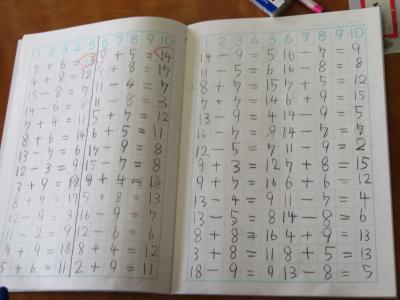 1 2 3 4 5 6 7 8 9 10
7 + 6 = 13 9 + 5 = 14
4 + 8 = 12
15 - 8 = 7 11 - 4 = 7
14 - 6 = 8 11 - 8 = 3
7 + 4 = 11 5 + 7 = 12
8 + 6 = 14 6 + 5 = 11
13 - 7 = 6 17 - 9 = 8
12 - 3 = 9 15 - 7 = 8
3 + 9 = 12 9 + 4 = 13
8 + 9 = 17 5 + 8 = 13
12 - 9 = 3 16 - 9 = 7
11 - 2 = 9 12 - 6 = 6
9 + 9 = 18 8 + 4 = 12
5 + 6 = 11 2 + 9 = 11
1 2 3 4 5 6 7 8 9 10
14 - 9 = 5 16 - 7 = 9
11 - 5 = 6 16 - 8 = 8
8 + 7 = 15 7 + 5 = 12
7 + 7 = 14 6 + 9 = 15
13 - 9 = 4 14 - 9 = 5
16 - 7 = 9 14 - 7 = 7
12 - 5 = 7 11 - 9 = 2
9 + 3 = 12 7 + 8 = 15
9 + 7 = 16 6 + 6 = 12
13 - 4 = 9 11 - 7 = 4
13 - 5 = 8 14 - 8 = 6
8 + 8 = 16 4 + 9 = 13
3 + 8 = 11 8 + 5 = 13
18 - 9 = 9 13 - 8 = 5